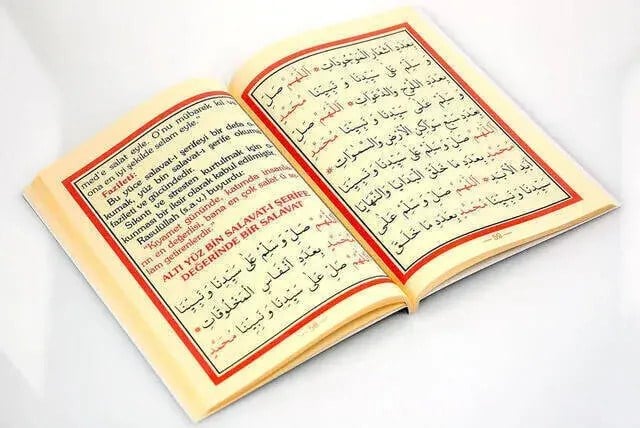 med'e salat eyle. O'nu mübarek kıl ve
ona en iyi şekilde selam eyle."
Fazileti:
Bu yüce salavat-ı şerifeyi bir defa o-
kumak, yüz bin salavat-ı şerife okuma
fazileti ve gücündedir.
Sıkıntı ve stresten kurtulmak için o-
kunması bir iksir olarak kabul edilmiştir.
Rasulüllah (s.a.v.) buyurdu:
"Kıyamet gününde, katımda insanla-
rın en değerlisi, bana en çok salat ü se-
lam getirenlerdir."
ALTI YÜZ BİN SALAVAT-I ŞERİFE
DEĞERİNDE BİR SALAVAT
اَللّٰهُمَّ صَلِّ وَسَلِّمْ عَلٰى سَيِّدِنَا وَنَبِيِّنَا
مُحَمَّدٍ بِعَدَدِ اَنْفَاسِ الْمَخْلُوقَاتِ *
اَللّٰهُمَّ صَلِّ عَلٰى سَيِّدِنَا وَنَبِيِّنَا مُحَمَّدٍ
— 58 —
بِعَدَدِ اَشْعَارِ الْمَوْجُودَاتِ * اَللّٰهُمَّ صَلِّ
وَسَلِّمْ عَلٰى سَيِّدِنَا وَنَبِيِّنَا مُحَمَّدٍ
بِعَدَدِ اللَّوْحِ وَالدَّعَوَاتِ * اَللّٰهُمَّ صَلِّ
وَسَلِّمْ عَلٰى سَيِّدِنَا وَنَبِيِّنَا مُحَمَّدٍ
بِعَدَدِ سَوَاكِنِ الْاَرْضِ وَالسَّمٰوَاتِ *
اَللّٰهُمَّ صَلِّ وَسَلِّمْ عَلٰى سَيِّدِنَا وَنَبِيِّنَا
مُحَمَّدٍ بِعَدَدِ مَا خَلَقَ الْبَدَايَا وَالنِّهَايَا
اَبَدِ الْاٰبِدِ * اَللّٰهُمَّ صَلِّ وَسَلِّمْ عَلٰى
سَيِّدِنَا وَنَبِيِّنَا مُحَمَّدٍ بِعَدَدِ مَا خَلَقَ
— 59 —